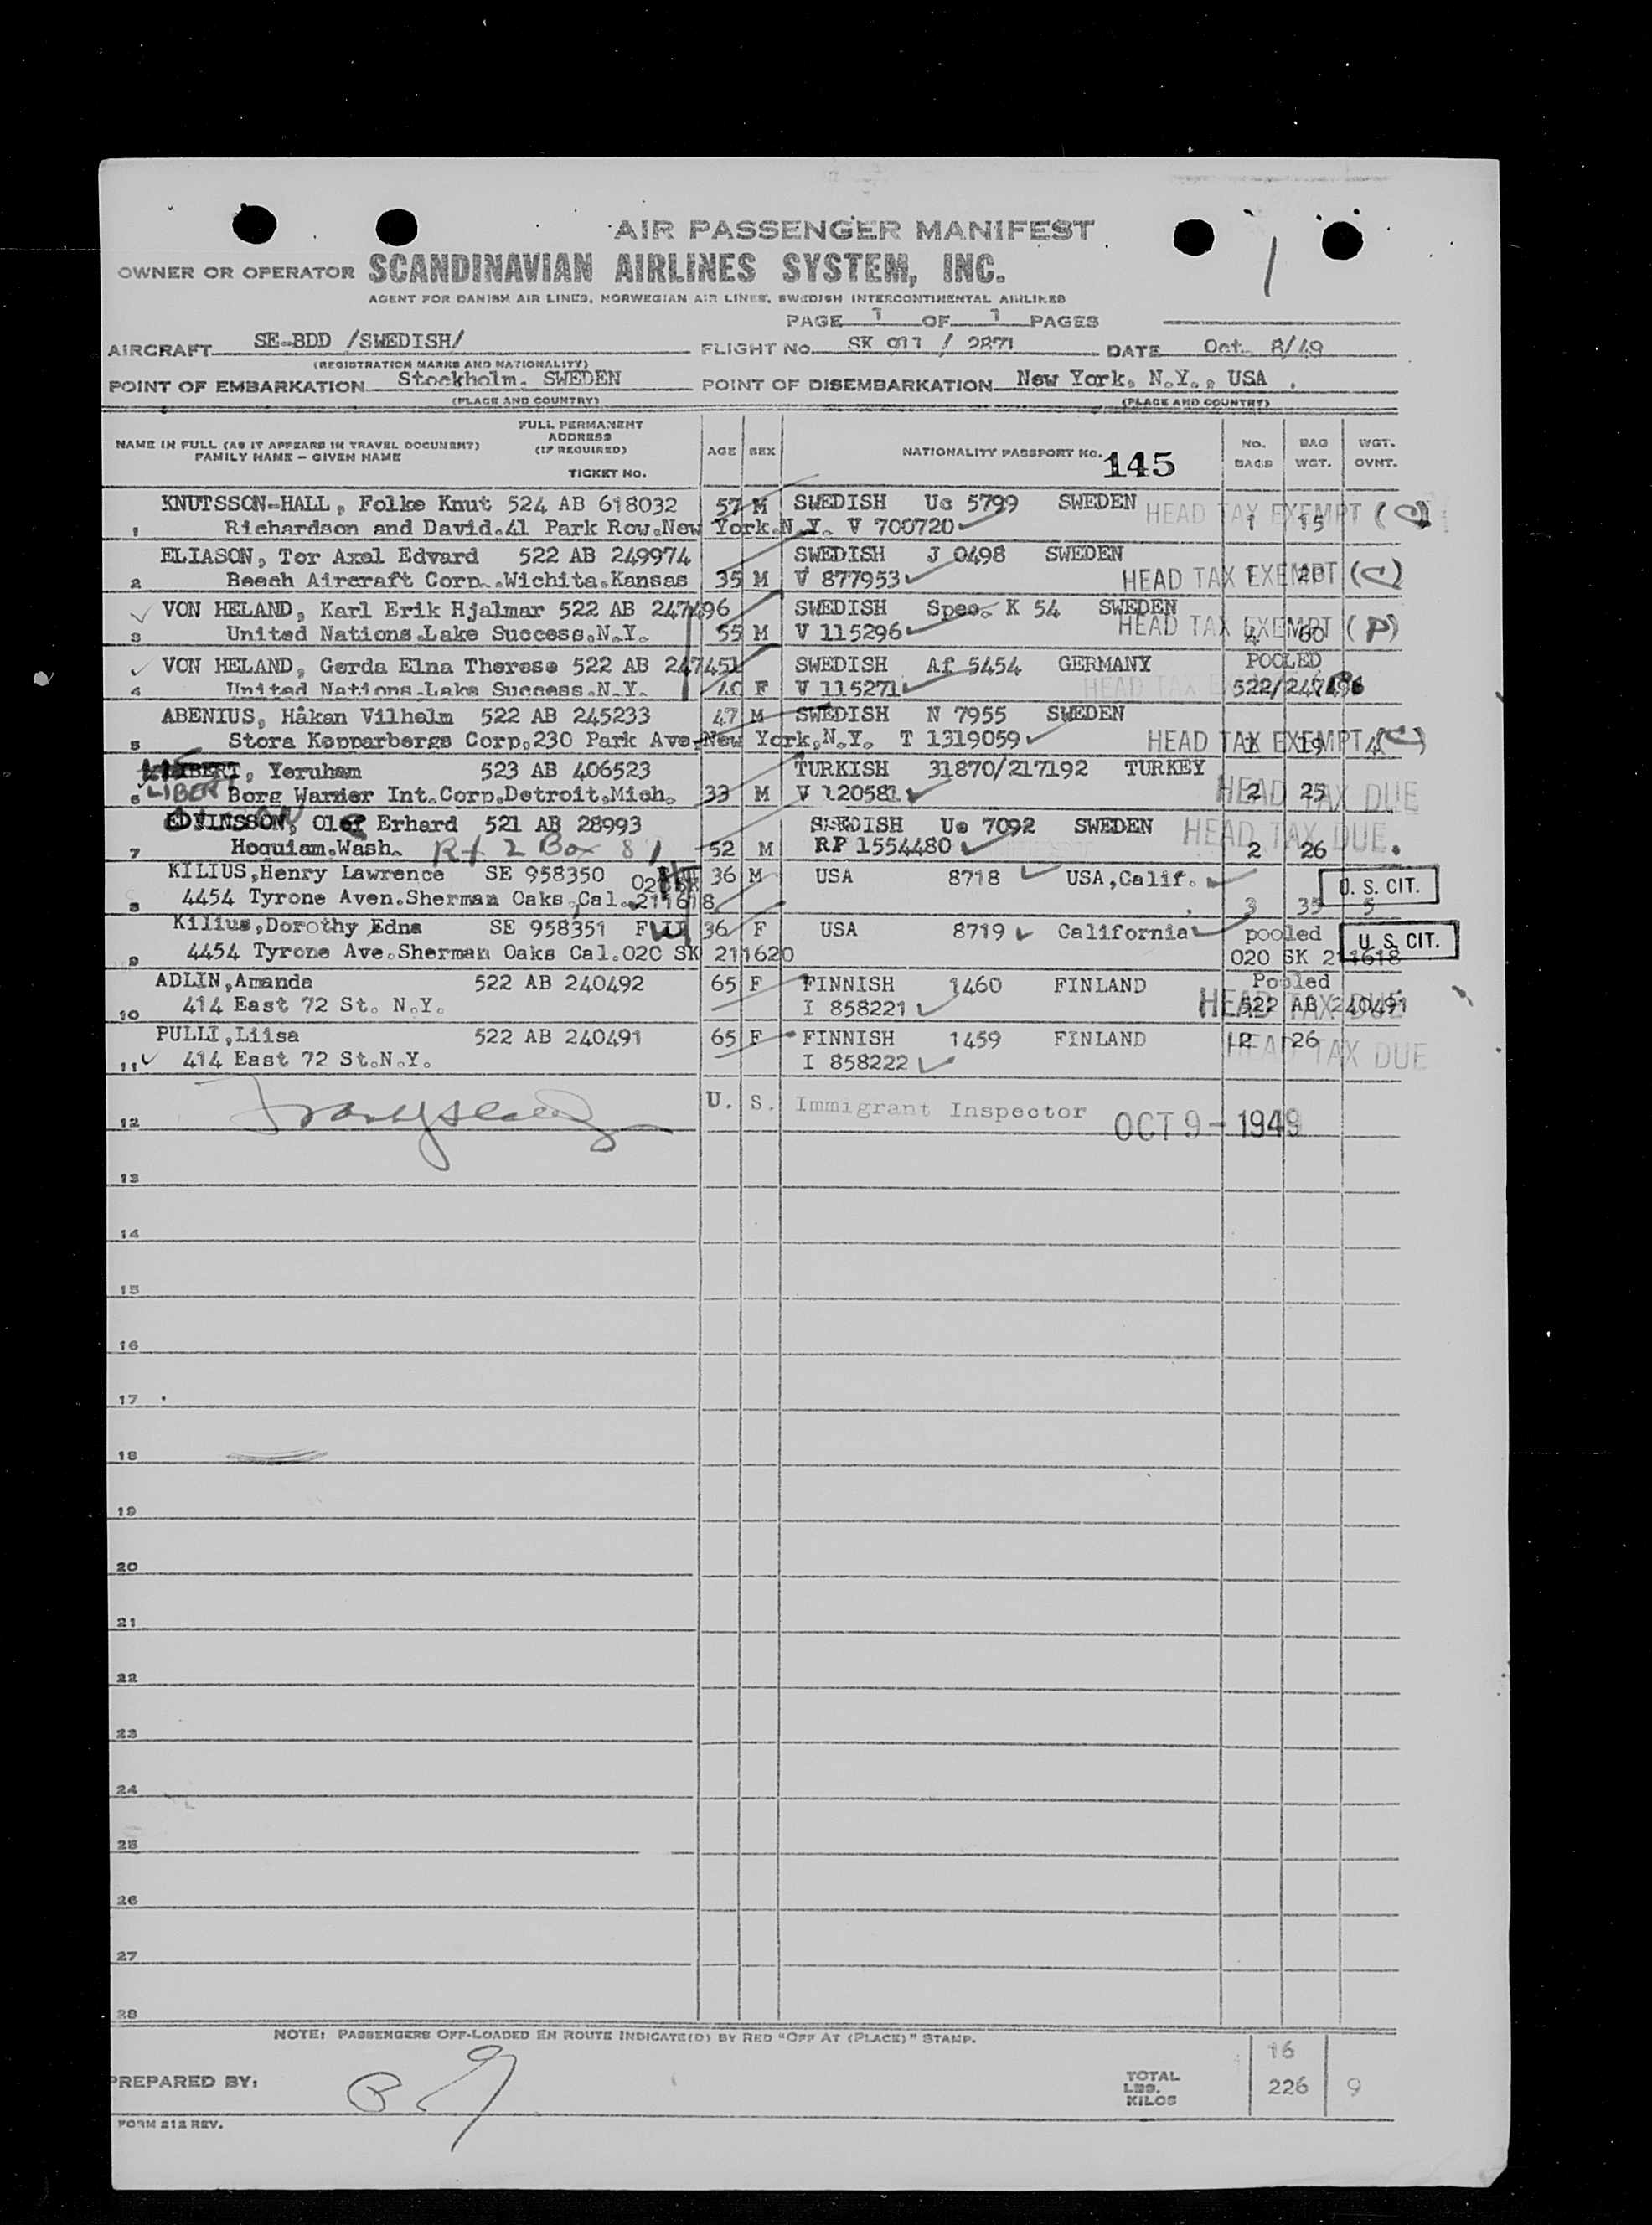 AIR PASSENGER MANIFEST
OWNER OR OPERATOR SCANDINAVIAN AIRLINES SYSTEM, INC.
AGENT FOR DANISH AIR LINES, NORWEGIAN AIR LINES, SWEDISH INTERCONTINENTAL AIRLINES
PAGE 1 OF 1 PAGES
AIRCRAFT SE-BDD /SWEDISH/ FLIGHT No. SK 911 / 2871 DATE Oct. 8/49
(REGISTRATION MARKS AND NATIONALITY)
POINT OF EMBARKATION Stockholm. SWEDEN POINT OF DISEMBARKATION New York, N.Y., USA
(PLACE AND COUNTRY) (PLACE AND COUNTRY)
NAME IN FULL (AS IT APPEARS IN TRAVEL DOCUMENT) FAMILY NAME - GIVEN NAME FULL PERMANENT ADDRESS (IF REQUIRED) TICKET No. AGE SEX NATIONALITY PASSPORT No. 145 No. BAGS BAG WGT. WGT. OVHT.
KNUTSSON-HALL, Folke Knut 524 AB 618032 57 M SWEDISH Us 5799 SWEDEN HEAD TAX EXEMPT (C)
1 Richardson and David.41 Park Row.New York.N.Y. V 700720 1 15
ELIASON, Tor Axel Edvard 522 AB 249974 SWEDISH J 0498 SWEDEN
2 Beech Aircraft Corp..Wichita.Kansas 35 M V 877953 HEAD TAX EXEMPT (C) 1 20
VON HELAND, Karl Erik Hjalmar 522 AB 247496 SWEDISH Spec. K 54 SWEDEN
3 United Nations.Lake Success.N.Y. 55 M V 115296 HEAD TAX EXEMPT (P) 4 60
VON HELAND, Gerda Elna Therese 522 AB 247451 SWEDISH Af 5454 GERMANY POOLED
4 United Nations.Lake Success.N.Y. 40 F V 115271 HEAD TAX 522/247496
ABENIUS, Håkan Vilhelm 522 AB 245233 47 M SWEDISH N 7955 SWEDEN
5 Stora Kopparbergs Corp.230 Park Ave.New York.N.Y. T 1319059 HEAD TAX EXEMPT (C) 1 19 4
LIBERT, Yeruham 523 AB 406523 TURKISH 31870/217192 TURKEY
6 LIBERT Borg Warner Int.Corp.Detroit.Mich. 33 M V 120581 HEAD TAX DUE 2 25
EDVINSSON, Olof Erhard 521 AB 28993 SWEDISH Us 7092 SWEDEN HEAD TAX DUE.
7 Hoquiam.Wash. Rt 2 Box 81 52 M RP 1554480 2 26
KILIUS,Henry Lawrence SE 958350 020 SK 36 M USA 8718 USA,Calif. U. S. CIT.
8 4454 Tyrone Aven.Sherman Oaks,Cal. 211618 3 35 5
Kilius,Dorothy Edna SE 958351 36 F USA 8719 California pooled U. S. CIT.
9 4454 Tyrone Ave.Sherman Oaks Cal.020 SK 211620 020 SK 211618
ADLIN,Amanda 522 AB 240492 65 F FINNISH 1460 FINLAND Pooled
10 414 East 72 St. N.Y. I 858221 HEAD TAX DUE 522 AB 240491
PULLI,Liisa 522 AB 240491 65 F FINNISH 1459 FINLAND 2 26
11 414 East 72 St.N.Y. I 858222 HEAD TAX DUE
12 U. S. Immigrant Inspector OCT 9 - 1949
13
14
15
16
17
18
19
20
21
22
23
24
25
26
27
28
NOTE: PASSENGERS OFF-LOADED EN ROUTE INDICATE(D) BY RED "OFF AT (PLACE)" STAMP.
16
PREPARED BY: TOTAL LBS. KILOS 226 9
FORM 212 REV.